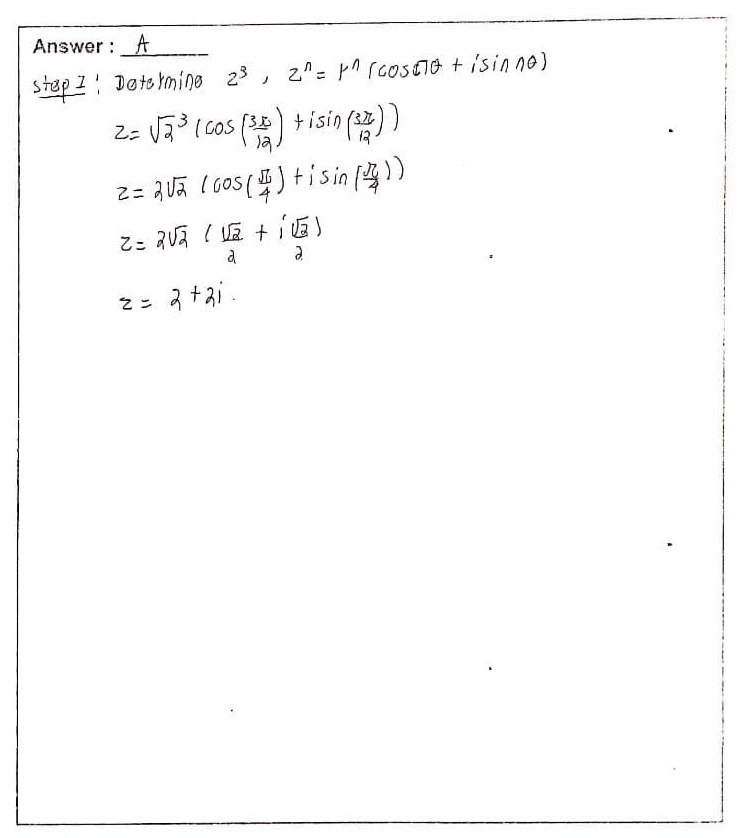 Answer : A
Step 1 : Determine z³ , zⁿ = rⁿ (cos nθ + i sin nθ)
z = √2³ (cos (3π/12) + i sin (3π/12))
z = 2√2 (cos (π/4) + i sin (π/4))
z = 2√2 (√2/2 + i √2/2)
z = 2 + 2i .